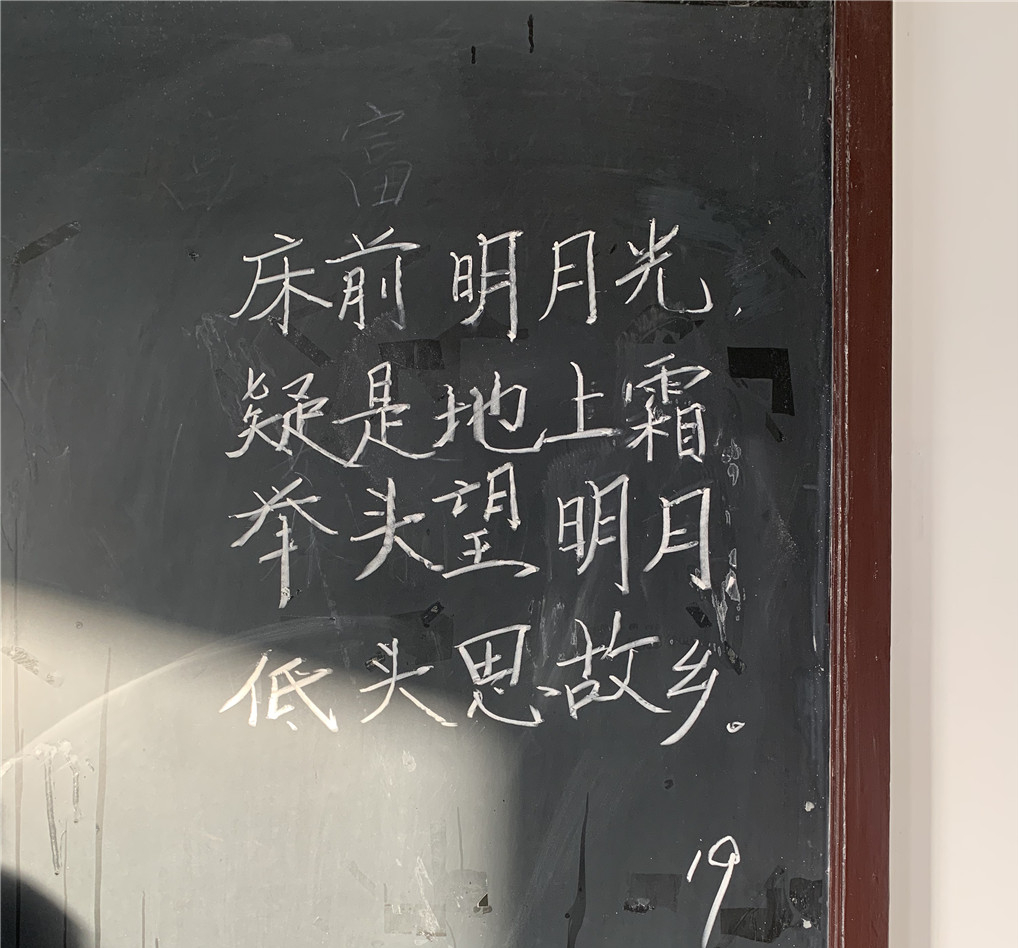 富
床前明月光,
疑是地上霜
举头望明月,
低头思故乡。
19